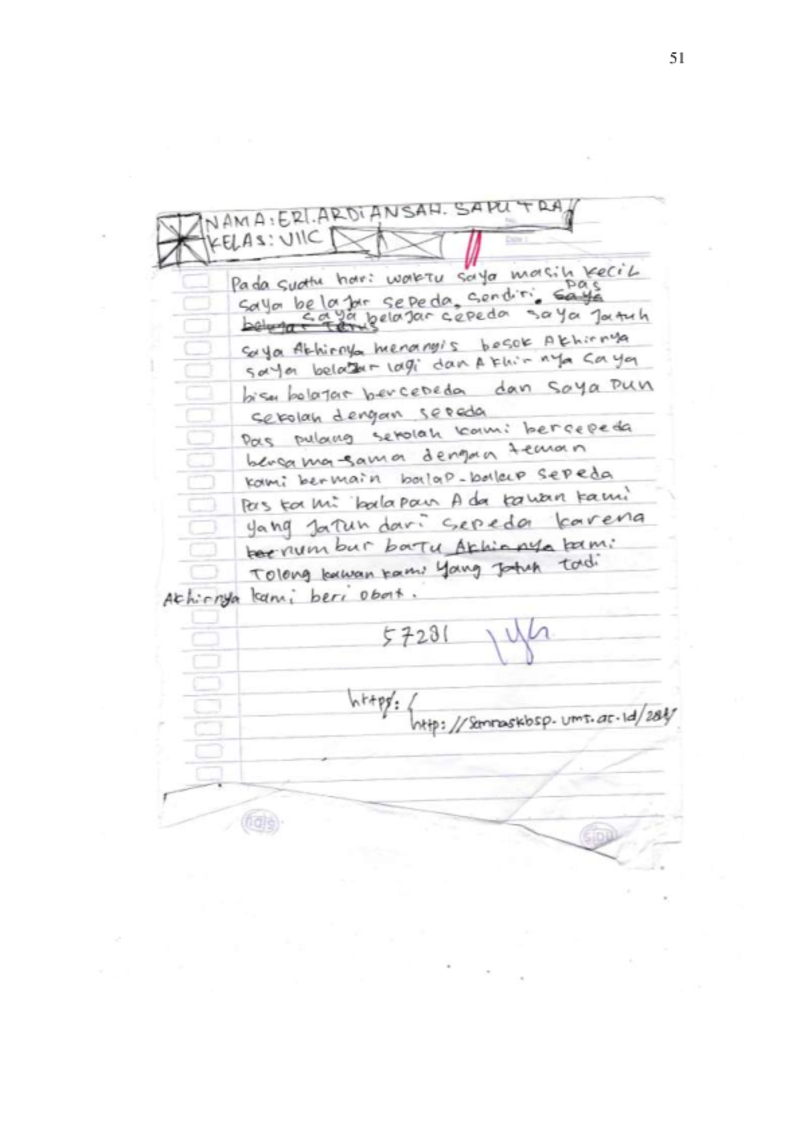 51
NAMA: ERI.ARDIANSAH. SAPUTRA
KELAS: VIIC
Pada suatu hari waktu saya masih kecil
saya belajar sepeda. sendiri. saya pas
belajar terus saya belajar sepeda saya jatuh
saya Akhirnya menangis besok Akhirnya
saya belajar lagi dan Akhirnya saya
bisa belajar bersepeda dan saya pun
sekolah dengan sepeda
Pas pulang sekolah kami bersepeda
bersama-sama dengan teman
kami bermain balap-balap sepeda
Pas kami balapan Ada kawan kami
yang jatuh dari sepeda karena
numbur batu Akhirnya kami
Tolong kawan kami yang jatuh tadi
Akhirnya kami beri obat.
57281
https:/